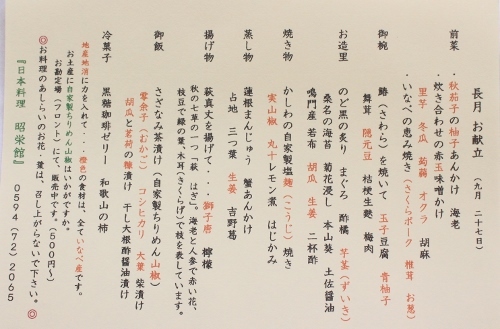 長月 お献立 (九月 二十七日)
前菜 ・秋茄子の柚子あんかけ 海老
・炊き合わせの赤玉味噌かけ
里芋 冬瓜 蒟蒻 オクラ 胡麻
・いなべの恵み焼き(さくらポーク 椎茸 お葱)
御椀 鰆(さわら)を焼いて 玉子豆腐 青柚子
舞茸 隠元豆 桔梗生麩 梅肉
お造里 のど黒の炙り まぐろ 酢橘 芋茎(ずいき)
桑名の海苔 菊花浸し 本山葵 土佐醤油
鳴門産若布 胡瓜 生姜 二杯酢
焼き物 かしわの自家製塩麹(こうじ)焼き
実山椒 丸十レモン煮 はじかみ
蒸し物 蓮根まんじゅう 蟹あんかけ
占地 三つ葉 生姜 吉野葛
揚げ物 萩真丈を揚げて・・・獅子唐 檸檬
秋の七草の一つ「萩 はぎ」。海老と人参で赤い花、
枝豆で緑の葉、木耳(きくらげ)で枝を表しています。
御飯 さざなみ茶漬け(自家製ちりめん山椒)
零余子(むかご) コシヒカリ 大葉 柴漬け
胡瓜と茗荷の糠漬け 干し大根酢醤油漬け
冷菓子 黒糖珈琲ゼリー 和歌山の柿
地産地消に力を入れて・・・橙色の食材は、全ていなべ産です。
お土産に自家製ちりめん山椒はいかがですか。
お勘定場(フロント)にて、販売中です。(500円~)
◎お料理のあしらいのお花、葉は、召し上がらないで下さい。◎
『日本料理 昭栄館』 0594(72)2065